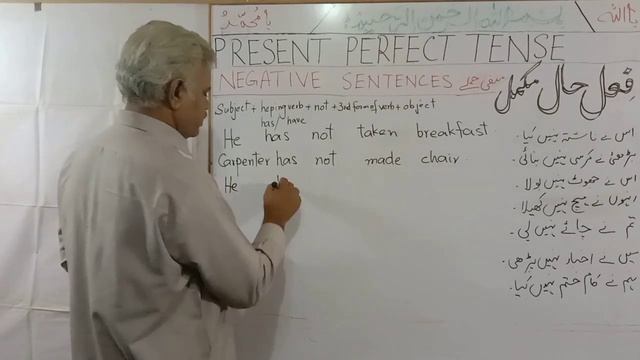 یا اللہ بسم اللہ الرحمن الرحیم یا محمدؐ
PRESENT PERFECT TENSE
NEGATIVE SENTENCES منفی جملے
فعل حال مکمل
Subject + heping verb + not + 3rd form of verb + object
has/have
He has not taken breakfast.
Carpenter has not made chair.
He
اس نے ناشتہ نہیں کیا۔
بڑھئی نے کرسی نہیں بنائی۔
اس نے جھوٹ نہیں بولا۔
انہوں نے میچ نہیں کھیلا۔
تم نے چائے نہیں پی۔
میں نے اخبار نہیں پڑھی۔
ہم نے کام ختم نہیں کیا۔